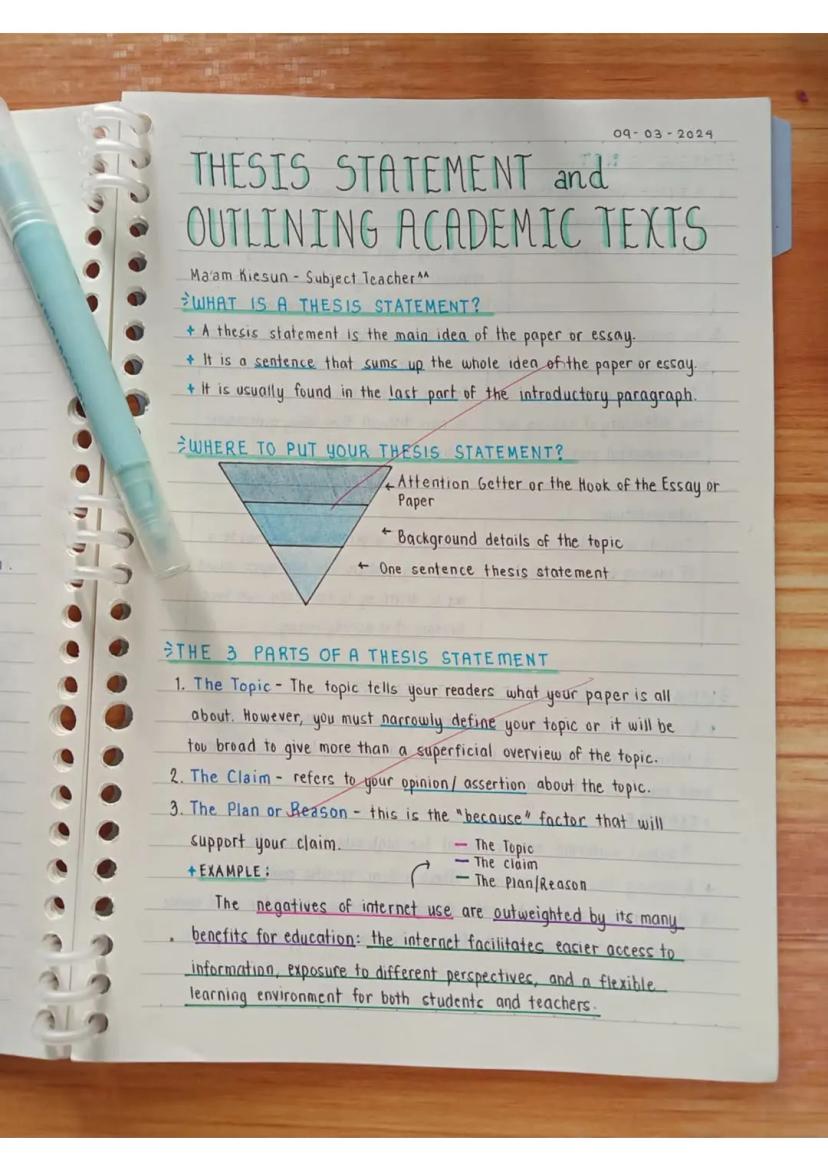 09-03-2024
THESIS STATEMENT and
OUTLINING ACADEMIC TEXTS
Ma'am Kiesun - Subject Teacher^^
WHAT IS A THESIS STATEMENT?
+ A thesis statement is the main idea of the paper or essay.
+ It is a sentence that sums up the whole idea of the paper or essay.
+ It is usually found in the last part of the introductory paragraph.
WHERE TO PUT YOUR THESIS STATEMENT?
← Attention Getter or the Hook of the Essay or
Paper
← Background details of the topic
← One sentence thesis statement
THE 3 PARTS OF A THESIS STATEMENT
1. The Topic - The topic tells your readers what your paper is all
about. However, you must narrowly define your topic or it will be
too broad to give more than a superficial overview of the topic.
2. The Claim - refers to your opinion/assertion about the topic.
3. The Plan or Reason - this is the "because" factor that will
support your claim.
— The Topic
— The claim
— The Plan/Reason
+ EXAMPLE:
The negatives of internet use are outweighted by its many
benefits for education: the internet facilitates easier access to
information, exposure to different perspectives, and a flexible
learning environment for both students and teachers.